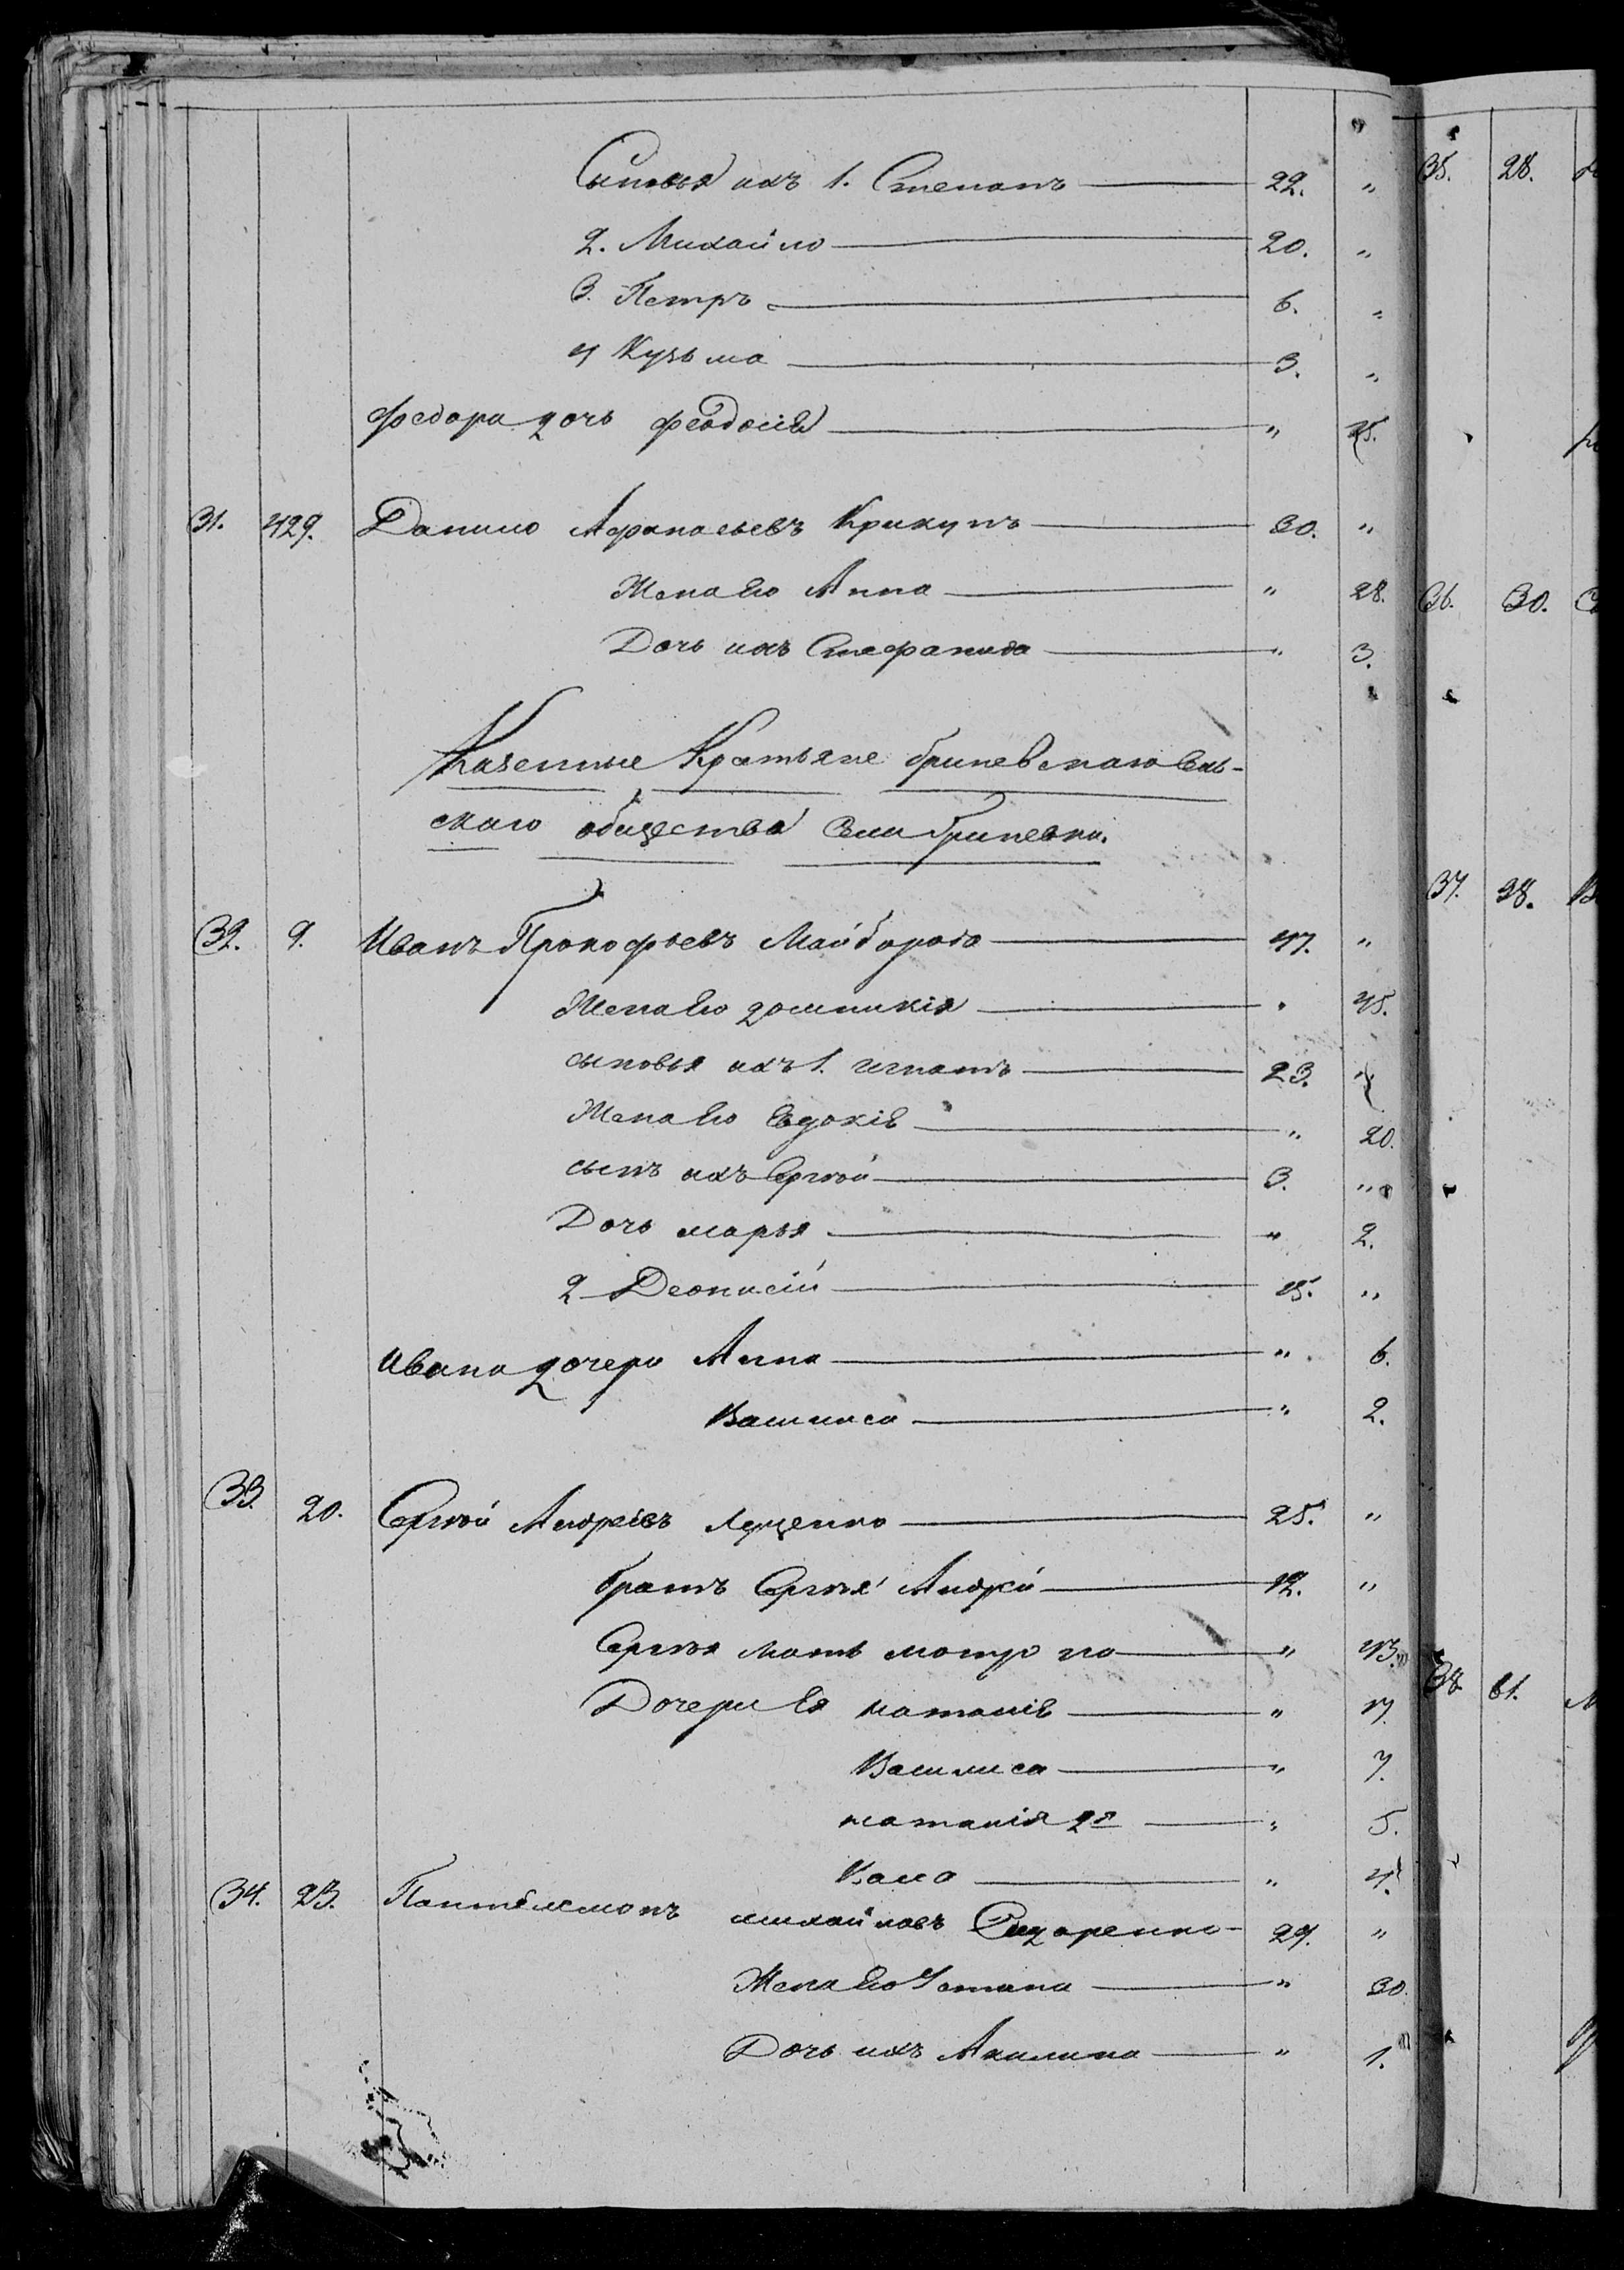 Сыновья ихъ 1. Степанъ 22. "
2. Михайло 20. "
3. Петръ 6. "
4 Кузьма 3. "
Федора дочь Феодосія " 15.
31. 429. Данило Афанасьевъ Крикунъ 30. "
Жена Его Анна " 28.
Дочь ихъ Стефанида " 3.
Казенные Крестьяне Гриневскаго Сель-
скаго общества Села Гриневки.
32. 9. Иванъ Прокофьевъ Майборода 47. "
Жена Его Домникія " 45.
сыновья ихъ 1. Игнатъ 23. "
Жена Его Евдокія " 20.
сынъ ихъ Сергѣй 3. "
Дочь марья " 2.
2 Деонисій 15. "
Ивана дочери Анна " 6.
Василиса " 2.
33. 20. Сергѣй Андреевъ Луценко 25. "
братъ Сергѣя Андрей 12. "
Сергѣя мать мотрона " 43.
Дочери Ея наталія " 17.
Василиса " 7.
наталія 2я " 5.
" 4.
34. 23. Пантелемонъ михайловъ Сидоренко 27. "
Жена Его Устина " 30.
Дочь ихъ Акилина " 1.
35. 28.
36. 30.
37. 38.
38. 61.